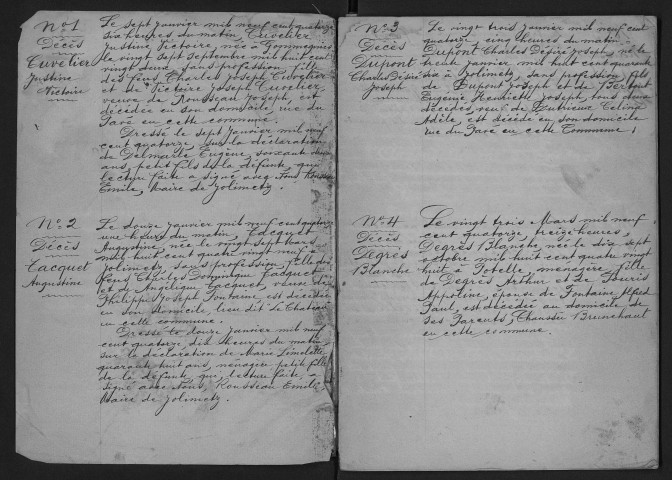 No 1
Décès
Cuvelier
Justine
Victoire
Le sept janvier mil neuf cent quatorze
six heures du matin, Cuvelier
Justine Victoire, née à Gommegnies
le vingt sept septembre mil huit cent
vingt sans profession, fille
des feus Charles Joseph Cuvelier
et de Victoire Joseph Cuvelier,
veuve de Rousseau Joseph, est
décédée en son domicile, rue du
Pavé en cette commune.
Dressé le sept janvier mil neuf
cent quatorze sur la déclaration
de Delmarle Eugène, soixante
ans, petit fils de la défunte, qui
lecture faite a signé avec Nous Rousseau
Emile, Maire de Jolimetz.
No 2
Décès
Cacquet
Augustine
Le douze janvier mil neuf cent quatorze
une heure du matin, Cacquet
Augustine, née le vingt sept Mars
mil huit cent quatre vingt neuf à
Jolimetz, sans profession, fille des
feus Charles Dominique Cacquet
et de Angélique Cacquet, veuve de
Philippe Joseph Fontaine est décédée
en son domicile, lieu dit Le Chateau
en cette commune.
Dressé le douze janvier mil neuf
cent quatorze dix heures du matin
sur la déclaration de Marie
quarante huit ans, ménagère petite fille
de la défunte, qui lecture faite a
signé avec Nous, Rousseau Emile
Maire de Jolimetz.
No 3
Décès
Dupont
Charles Désiré
Joseph
Le vingt trois janvier mil neuf cent
quatorze cinq heures du matin
Dupont Charles Désiré Joseph, né le
trente janvier mil huit cent quarante
à Jolimetz, sans profession, fils
de Dupont Joseph et de
Eugénie Henriette Joseph, tous deux
décédés, veuf de Célina
Adèle, est décédé en son domicile
rue du Pavé en cette Commune.
No 4
Décès
Degrès
Blanche
Le vingt trois Mars mil neuf
cent quatorze, treize heures,
Degrès Blanche, née le dix sept
octobre mil huit cent quatre vingt
huit à Potelle, ménagère, fille
de Degrès Arthur et de
Appoline, épouse de Fontaine Alfred
Paul, est décédée au domicile de
ses Parents, Chaussée Brunehaut
en cette commune.